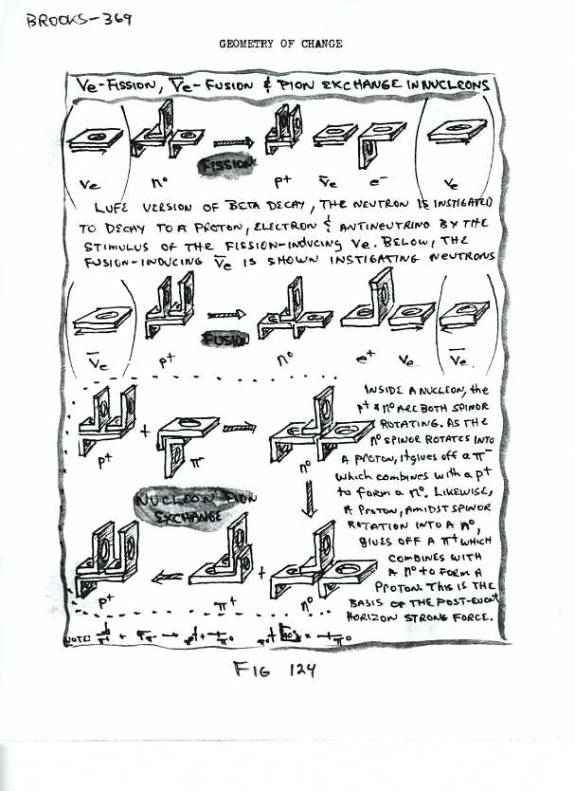 BROOKS-369
GEOMETRY OF CHANGE
νe-FISSION, ν̅e-FUSION & PION EXCHANGE IN NUCLEONS
νe n⁰ FISSION p⁺ ν̅e e⁻ νe
LUFE VERSION OF BETA DECAY, THE NEUTRON IS INSTIGATED
TO DECAY TO A PROTON, ELECTRON & ANTINEUTRINO BY THE
STIMULUS OF THE FISSION-INDUCING νe. BELOW, THE
FUSION-INDUCING ν̅e IS SHOWN INSTIGATING NEUTRONS
ν̅e p⁺ FUSION n⁰ e⁺ νe ν̅e
p⁺ + π⁻ n⁰
NUCLEON PION
EXCHANGE
p⁺ π⁺ + n⁰
INSIDE A NUCLEON, the
p⁺ & n⁰ ARE BOTH SPINOR
ROTATING. AS THE
n⁰ SPINOR ROTATES INTO
A PROTON, it gives off a π⁻
which combines with a p⁺
to form a n⁰. LIKEWISE,
A PROTON, AMIDST SPINOR
ROTATION INTO A n⁰,
GIVES OFF A π⁺ WHICH
COMBINES WITH
A n⁰ to FORM A
PROTON. THIS IS THE
BASIS OF THE POST-EVENT
HORIZON STRONG FORCE.
NOTE:
FIG 124